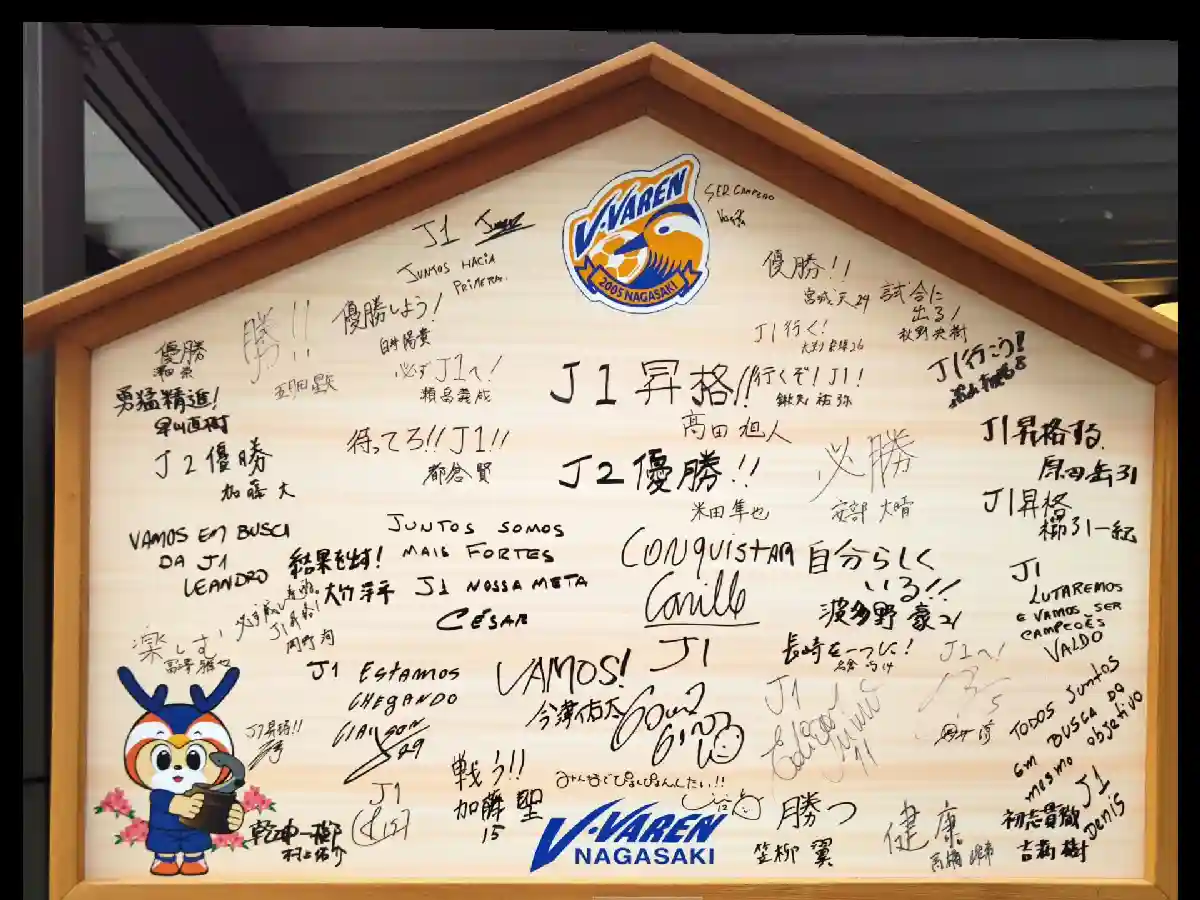 V·VAREN
2005 NAGASAKI
SER CAMPEÃO
J1
JUNTOS HACIA
PRIMERA.
優勝しよう!
白井陽貴
優勝!!
宮城 天 29
試合に
出る!
秋野央樹
勝!!
五月田星矢
優勝
勇猛精進!
早川直樹
必ずJ1へ!
J1行く!
J1行こう!
J1昇格!!
髙田 旭人
行くぞ!J1!
鍬先 祐弥
J2優勝
加藤 大
待ってろ!!J1!!
都倉 賢
J2優勝!!
米田 隼也
必勝
安部 大晴
J1昇格する
原田岳 31
J1昇格
櫛引一紀
VAMOS EM BUSCA
DA J1
LEANDRO
結果を出す!
大竹 洋平
JUNTOS SOMOS
MAIS FORTES
J1 NOSSA META
CÉSAR
CONQUISTAR
Carille
J1
自分らしく
いる!!
波多野 豪 21
J1
LUTAREMOS
E VAMOS SER
CAMPEÕES
VALDO
J1昇格!
岡野 洵
楽しむ
J1 ESTAMOS
CHEGANDO
CLAYSON
29
VAMOS!
今津佑太
長崎を一つに!
J1へ!
J1
Edigar Junio
11
TODOS JUNTOS
EM BUSCA DO
MESMO objetivo
J1
Denis
J1昇格!!
J1
戦う!!
加藤 聖
15
みんなでぴょんぴょんしたい!!
V·VAREN
NAGASAKI
勝つ
笠柳 翼
健康
初志貫徹
乾坤一擲
村上佑介